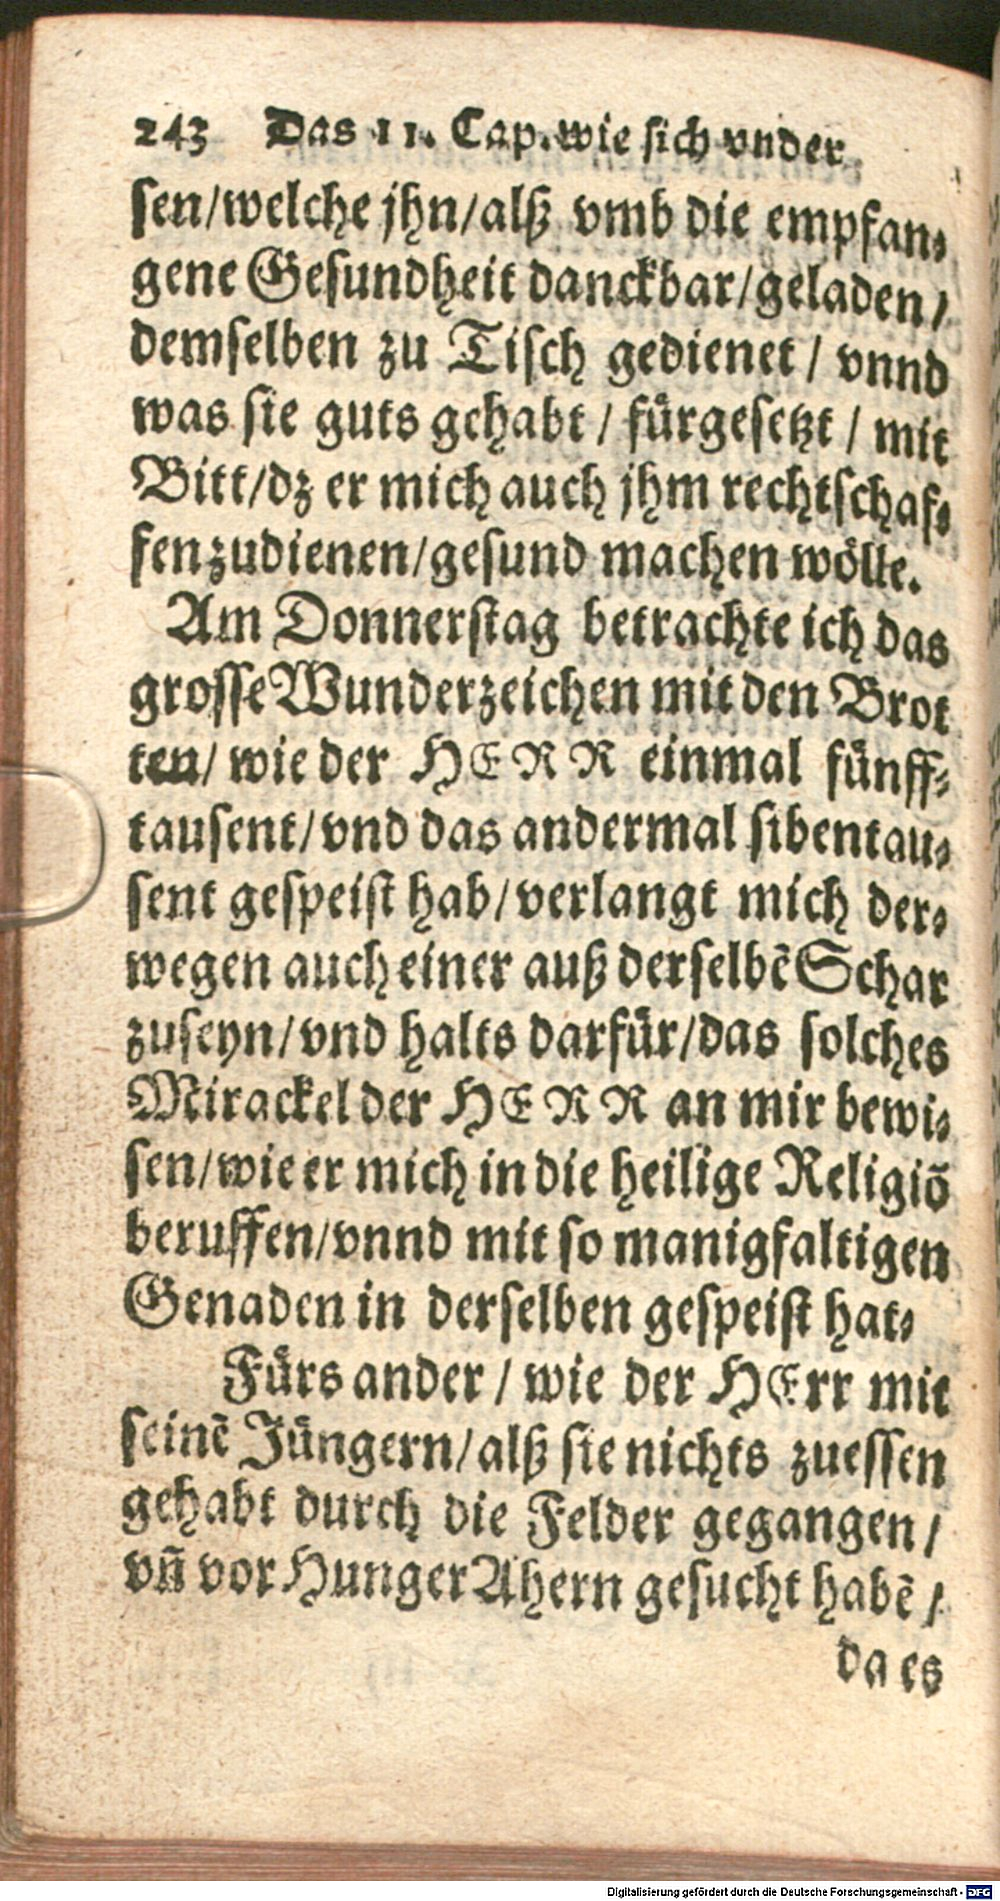 243 Das 11. Cap. wie sich vnder
sen/welche jhn/alß vmb die empfan-
gene Gesundheit danckbar/geladen/
demselben zu Tisch gedienet / vnnd
was sie guts gehabt / fürgesetzt / mit
Bitt/dz er mich auch jhm rechtschaf-
fen zudienen/gesund machen wölle.
Am Donnerstag betrachte ich das
grosse Wunderzeichen mit den Brot
ten/ wie der HERR einmal fünff-
tausent/vnd das andermal sibentau-
sent gespeist hab/verlangt mich der-
wegen auch einer auß derselbẽ Schar
zuseyn/vnd halts darfür/das solches
Mirackel der HERR an mir bewi-
sen/wie er mich in die heilige Religiõ
beruffen/vnnd mit so manigfaltigen
Genaden in derselben gespeist hat-
Fürs ander / wie der HErr mit
seinẽ Jüngern/alß sie nichts zuessen
gehabt durch die Felder gegangen/
vñ vor Hunger Ahern gesucht habẽ /
da es
Digitalisierung gefördert durch die Deutsche Forschungsgemeinschaft - DFG